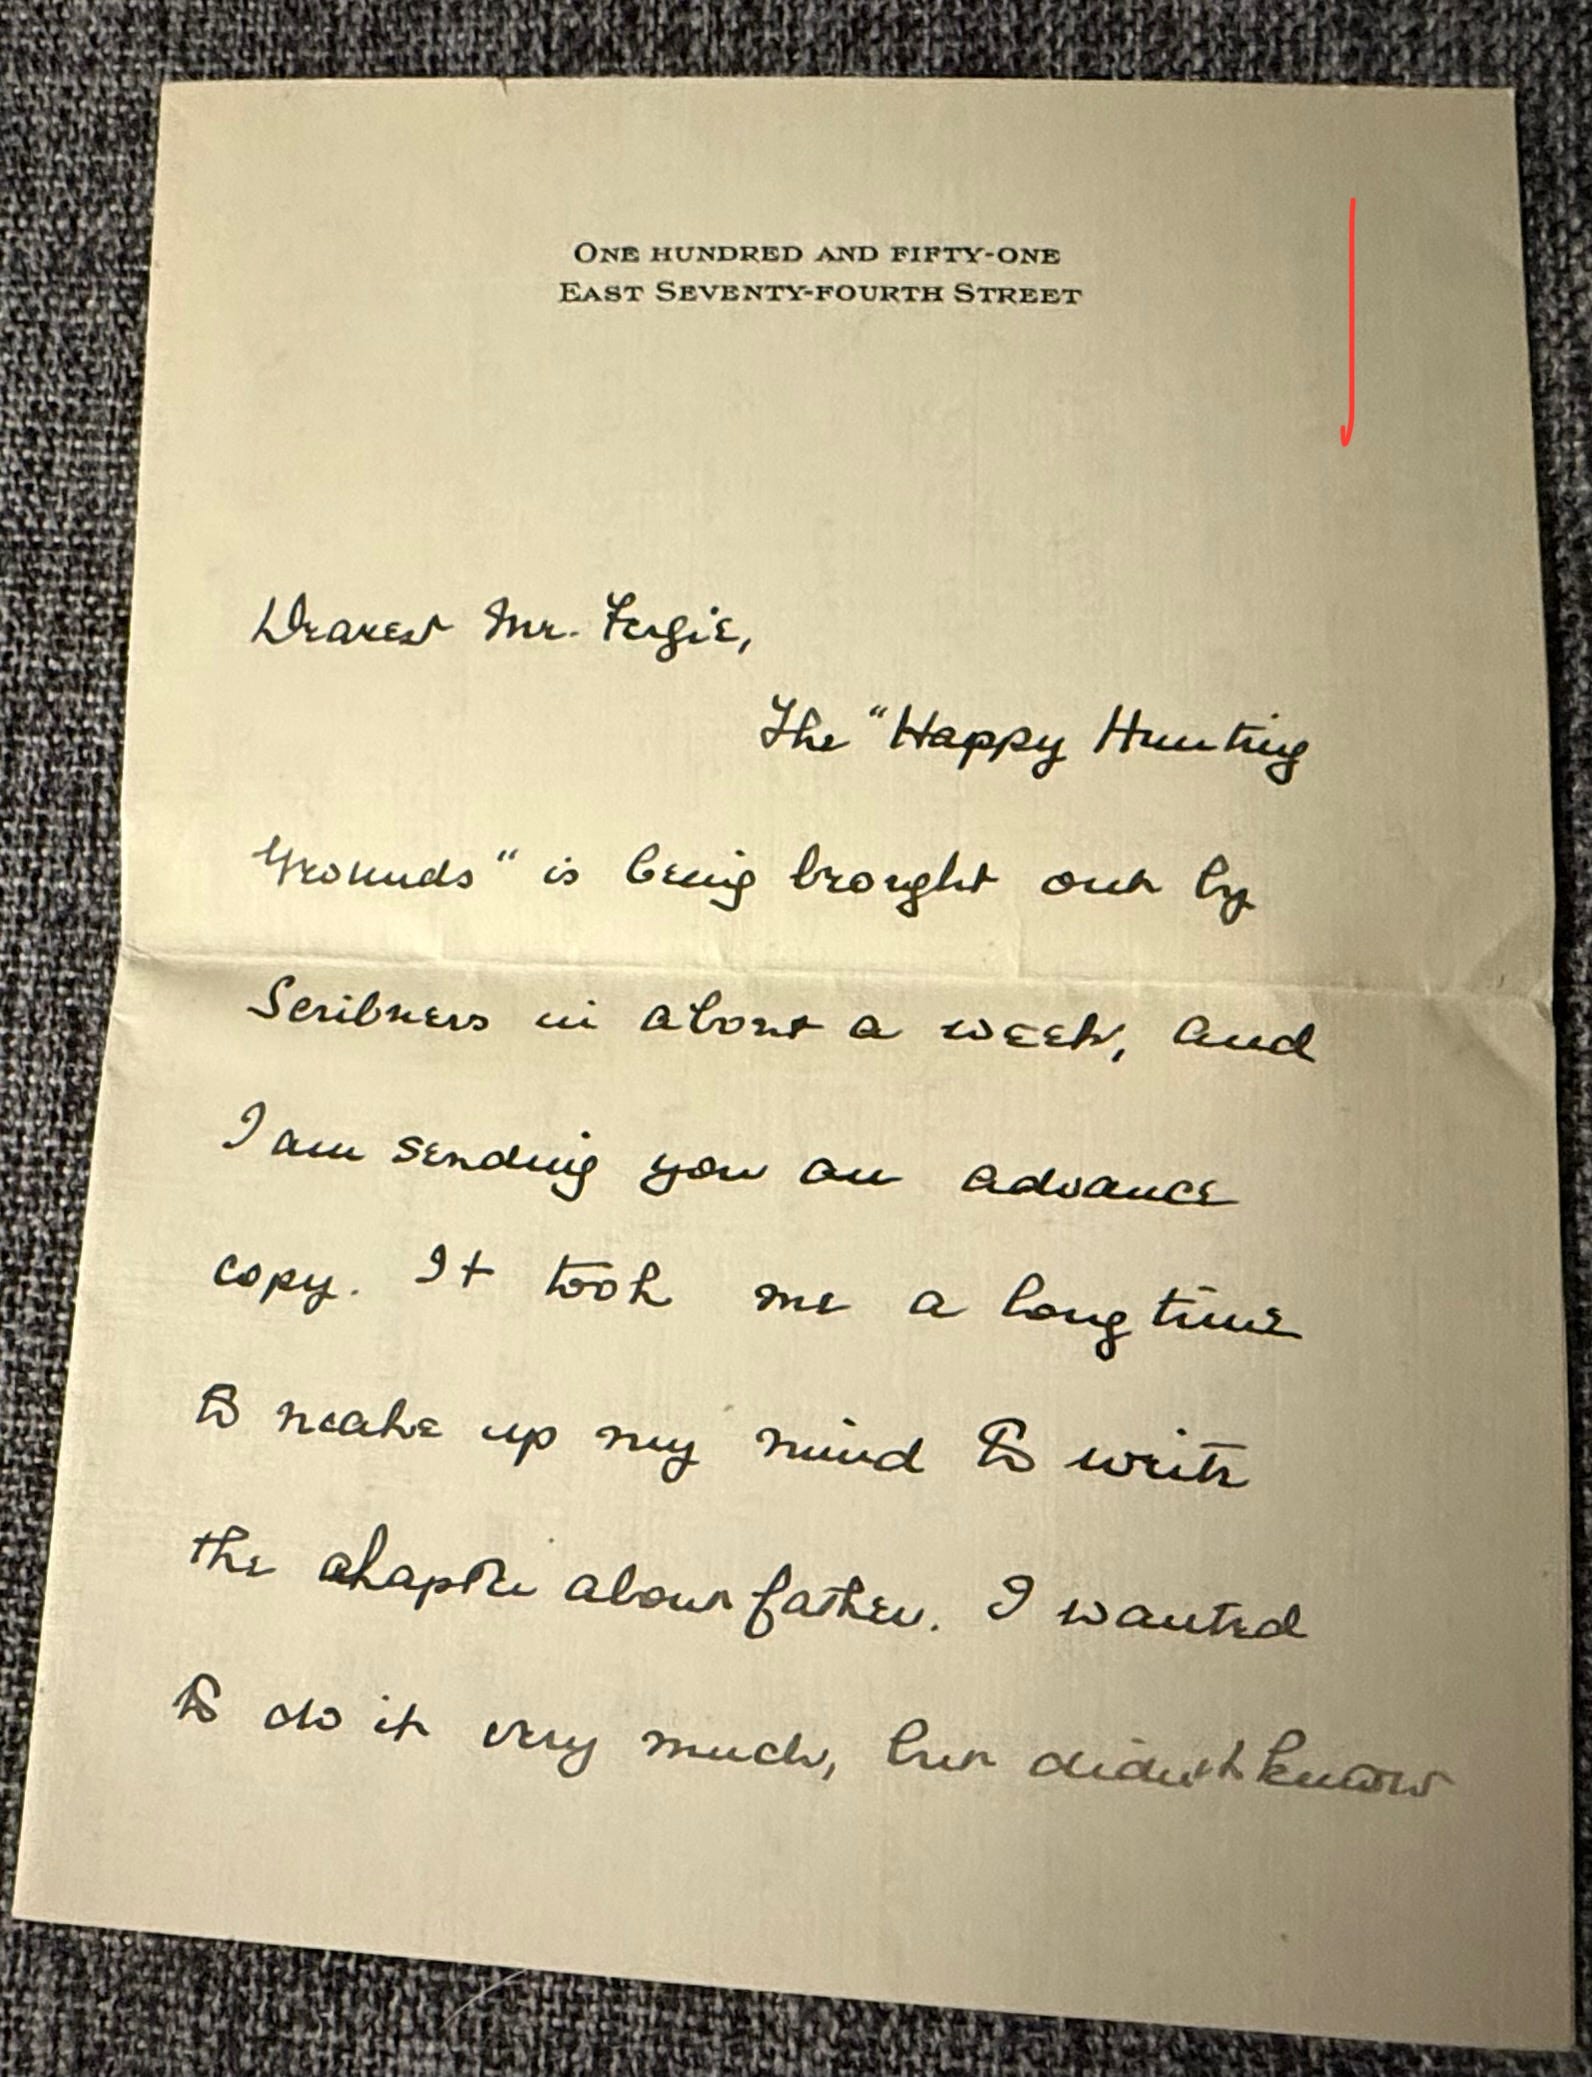 ONE HUNDRED AND FIFTY-ONE
EAST SEVENTY-FOURTH STREET
Dearest Mr. Fergie,
The "Happy Hunting
Grounds" is being brought out by
Scribners in about a week, and
I am sending you an advance
copy. It took me a long time
to make up my mind to write
the chapter about father. I wanted
to do it very much, but didn't know